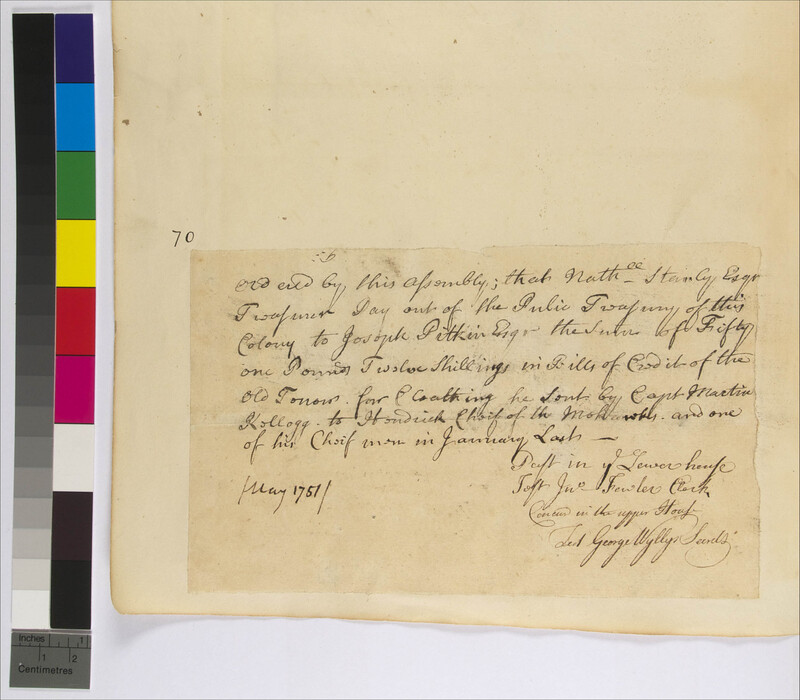 70
Ordered by this Assembly; that Nathll Stanly Esqr
Treasurer Pay out of the Public Treasury of this
Colony to Joseph Pitkin Esqr the Sum of Fifty
one Pounds Twelve Shillings in Bills of Credit of the
Old Tenour. for Cloathing he Sent by Capt Martin
Kellogg. to Hendrick Cheif of the Mohawks. and one
of his Cheif men in January Last —
Past in ye Lower house
Test Jno Fowler Clerk
/May 1751/
Concurd in the upper House
Test George Wyllys Secrety
Inches
1
1
2
Centimetres